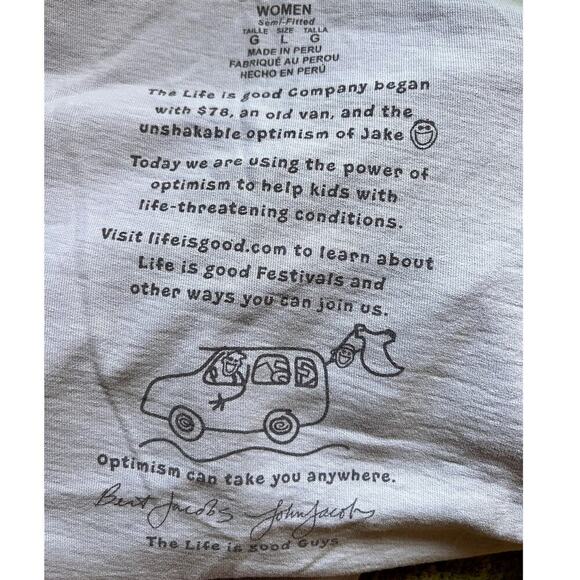 WOMEN
Semi-Fitted
TAILLE SIZE TALLA
G L G
MADE IN PERU
FABRIQUÉ AU PEROU
HECHO EN PERÚ
The Life is good Company began
with $78, an old van, and the
unshakable optimism of Jake
Today we are using the power of
optimism to help kids with
life-threatening conditions.
Visit lifeisgood.com to learn about
Life is good Festivals and
other ways you can join us.
Optimism can take you anywhere.
Bert Jacobs John Jacobs
The Life is good Guys